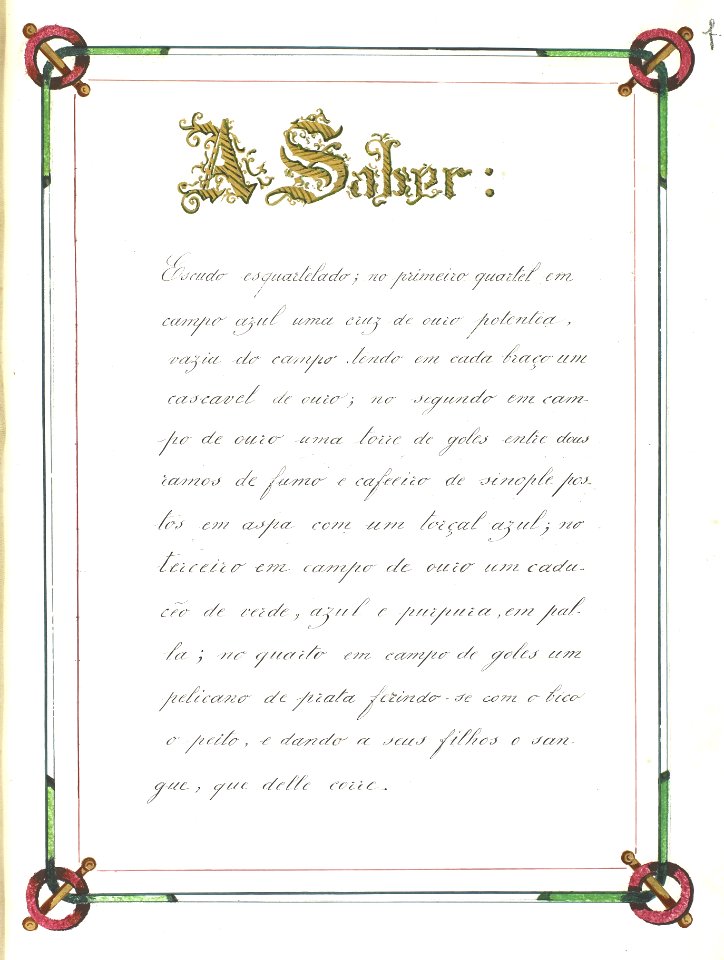 A Saber:
Escudo esquartelado; no primeiro quartel em
campo azul uma cruz de ouro potentea,
vazia do campo tendo em cada braço um
cascavel de ouro; no segundo em cam-
po de ouro uma torre de goles entre dous
ramos de fumo e cafeeiro de sinople pos-
tos em aspa com um torçal azul; no
terceiro em campo de ouro um cadu-
cêo de verde, azul e purpura, em pal-
la; no quarto em campo de goles um
pelicano de prata ferindo-se com o bico
o peito, e dando a seus filhos o san-
gue, que delle corre.